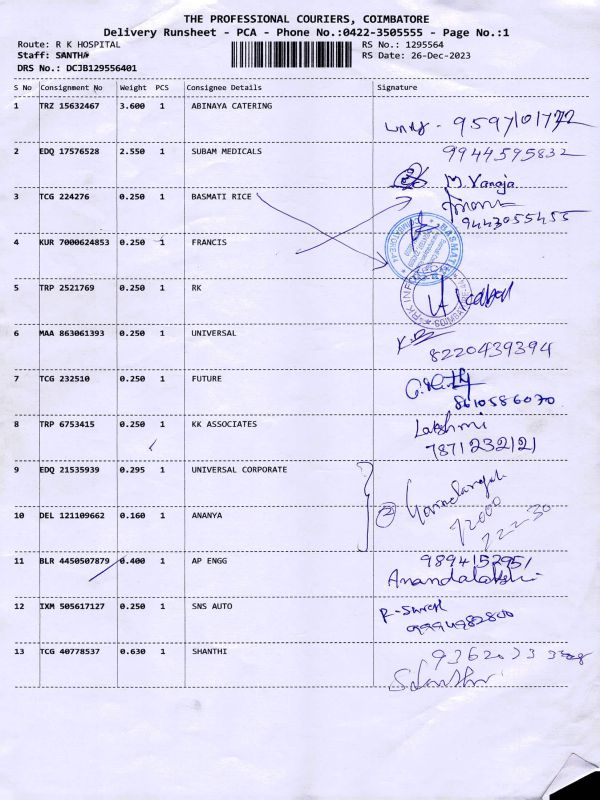 THE PROFESSIONAL COURIERS, COIMBATORE
Delivery Runsheet - PCA - Phone No.:0422-3505555 - Page No.:1
Route: R K HOSPITAL
Staff: SANTHA
DRS No.: DCJB129556401
RS No.: 1295564
RS Date: 26-Dec-2023
S No Consignment No Weight PCS Consignee Details Signature
1 TRZ 15632467 3.600 1 ABINAYA CATERING
9597101772
2 EDQ 17576528 2.550 1 SUBAM MEDICALS
9944595832
M. Vanaja
3 TCG 224276 0.250 1 BASMATI RICE
9443055455
4 KUR 7000624853 0.250 1 FRANCIS
5 TRP 2521769 0.250 1 RK
6 MAA 863061393 0.250 1 UNIVERSAL
8220439394
7 TCG 232510 0.250 1 FUTURE
8610586070
8 TRP 6753415 0.250 1 KK ASSOCIATES
Lakshmi
7871232121
9 EDQ 21535939 0.295 1 UNIVERSAL CORPORATE
10 DEL 121109662 0.160 1 ANANYA
2
11 BLR 4450507879 0.400 1 AP ENGG
9894152951
12 IXM 505617127 0.250 1 SNS AUTO
13 TCG 40778537 0.630 1 SHANTHI